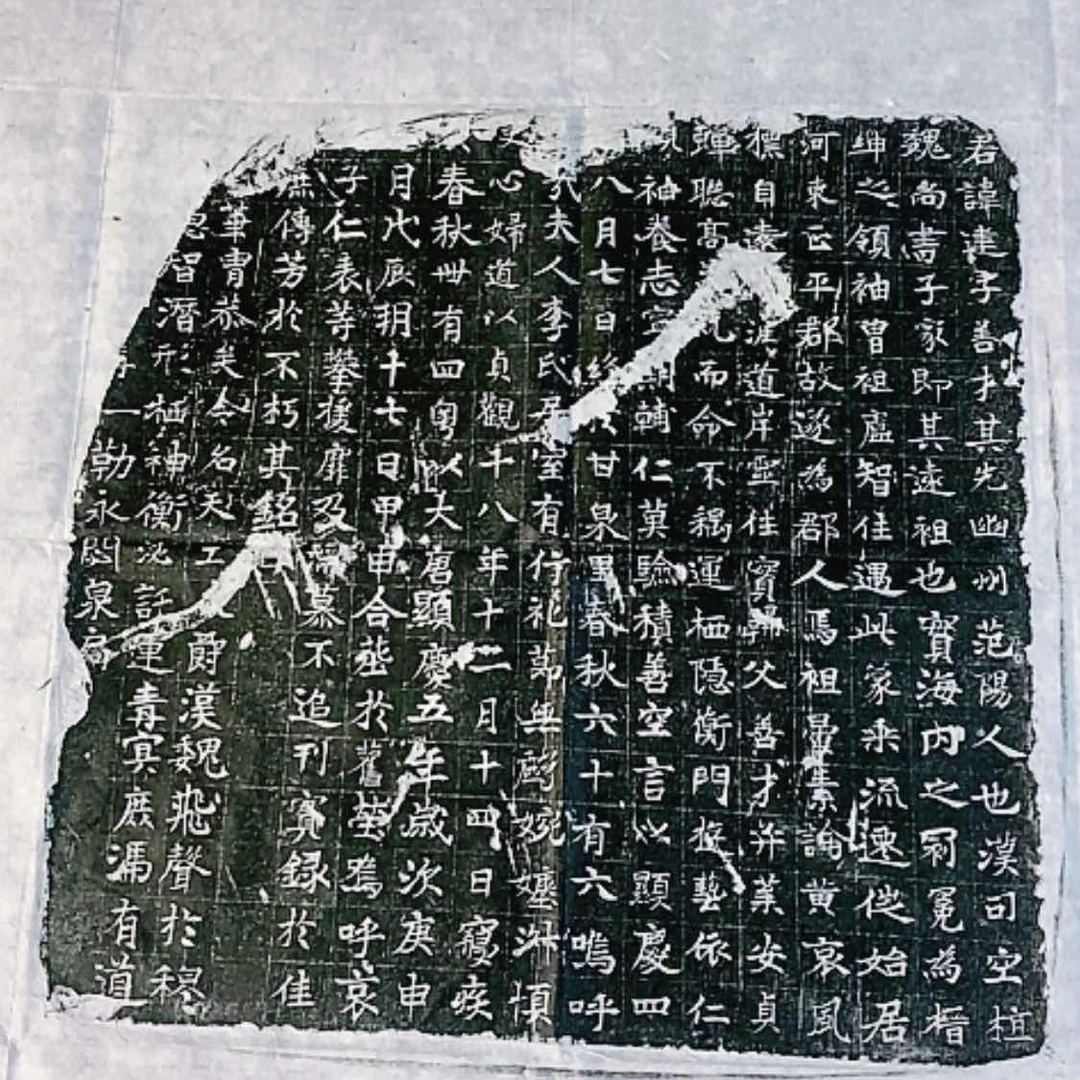 君諱連子善才其先幽州范陽人也漢司空植
魏尚書子家即其遠祖也寶海內之冠冕為搢
紳之領袖曾祖盧智往遇此篆來流連俀始居
河東正平郡故遂為郡人焉祖曇素論黃裏風
標自遠 涯道岸罕住寶歸父善才并業安貞
蟬聯高 凡而命不稱運栖隱衡門遊藝依仁
領袖養志 輔仁莫驗積善空言以顯慶四
八月七日終於甘泉里春秋六十有六嗚呼
夫人李氏居室有行礼節無虧婉嬺淋慎
心婦道以貞觀十八年十二月十四日寢疾
春秋卌有四粵以大唐顯慶五年歲次庚申
月戊辰玥十七日甲申合葬於舊塋嗚呼哀
子仁表等攀援靡及 慕不追刊實録於佳
傳芳於不朽其銘曰
筆胄恭矣令名天工 爵漢魏飛聲於穆
智潛形栖神衡泌託運青冥庶馮有道
一勒永閟泉扃